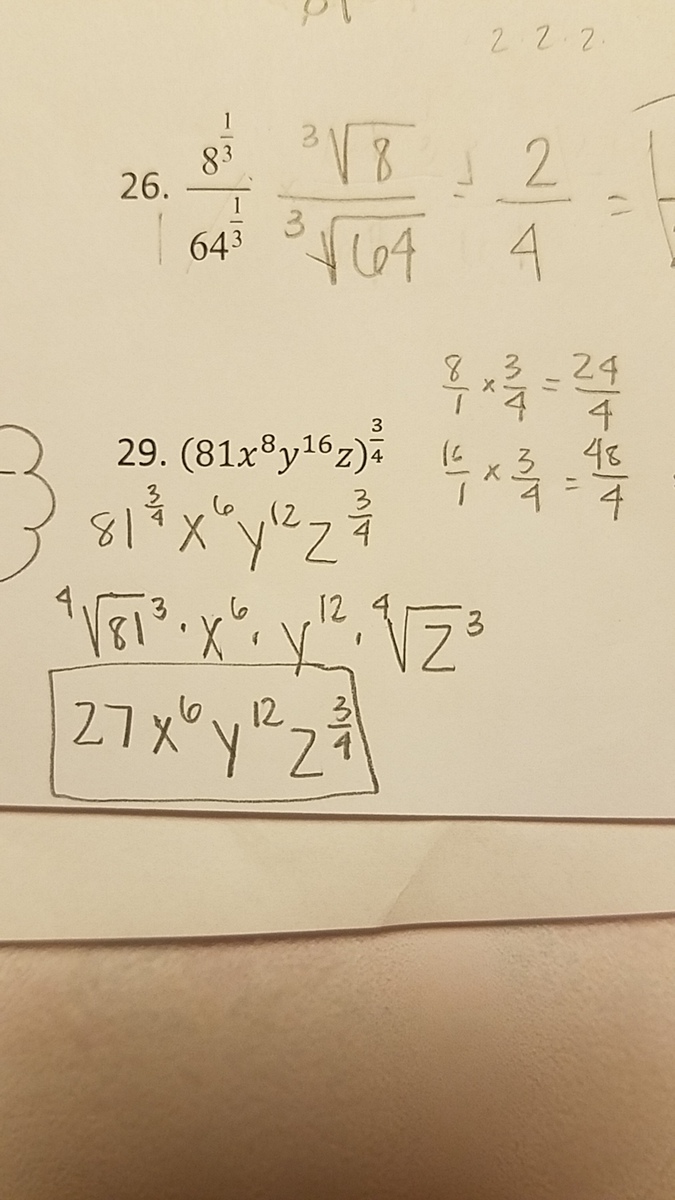 2 · 2 · 2 ·
26. 8^(1/3) / 64^(1/3)   ³√8 / ³√64 = 2/4 =
8/1 × 3/4 = 24/4
29. (81x⁸y¹⁶z)^(3/4)   16/1 × 3/4 = 48/4
81^(3/4) x⁶ y¹² z^(3/4)
⁴√81³ · x⁶ · y¹² · ⁴√z³
27 x⁶ y¹² z^(3/4)